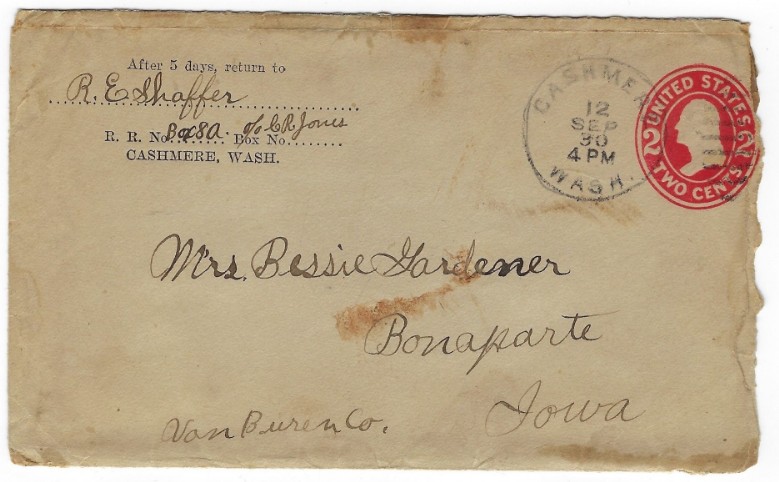 After 5 days, return to
R. E. Shaffer
R. R. No. Box 8A. Box No. c/o C R Jones
CASHMERE, WASH.
CASHMER
12
SEP
30
4 PM
WASH.
UNITED STATES
2 2
TWO CENTS
Mrs. Bessie Gardener
Bonaparte
Iowa
Van Buren Co.